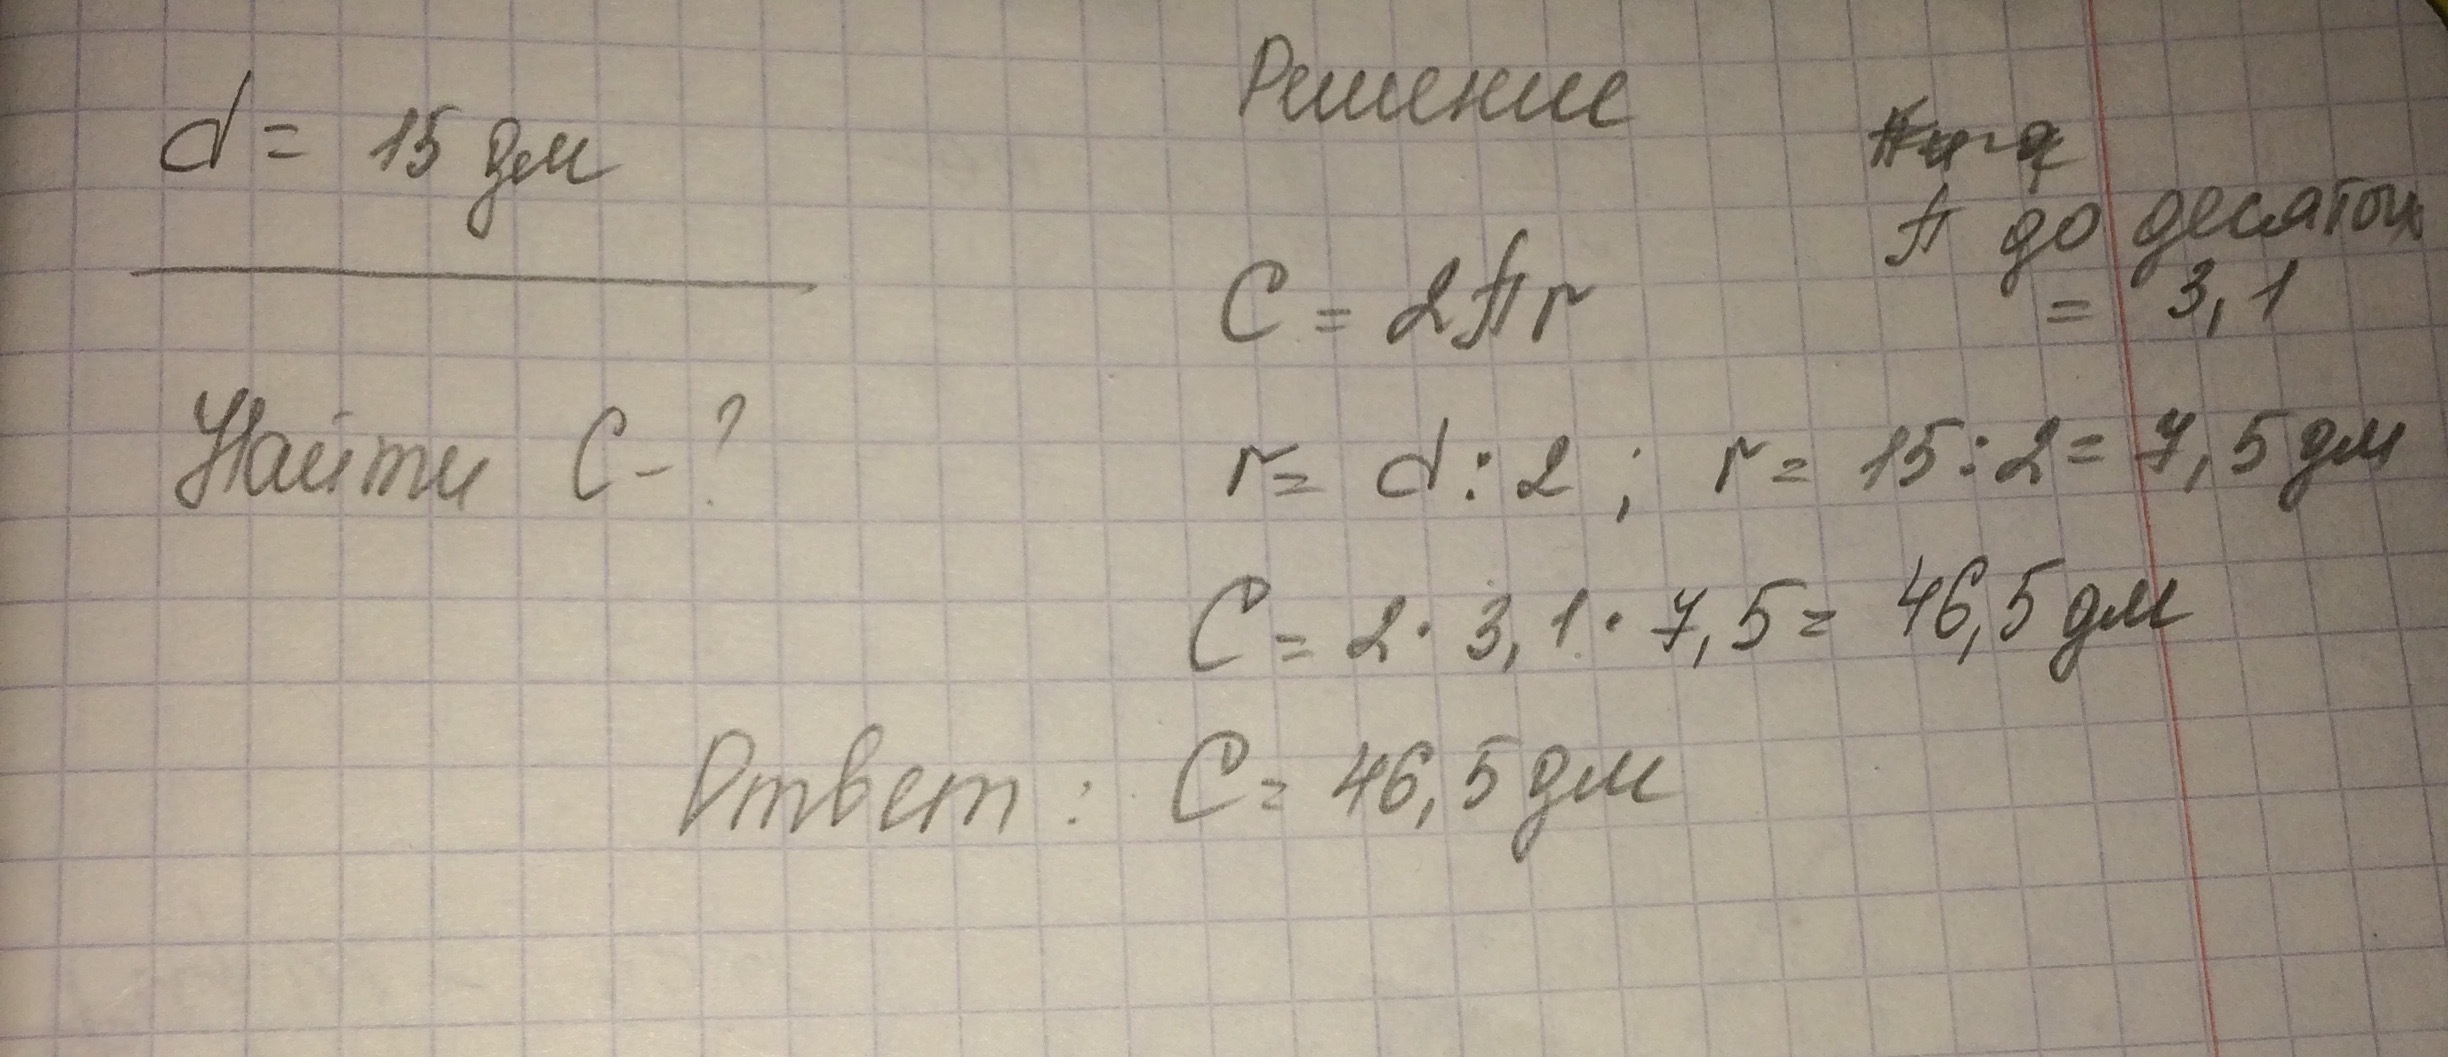 d = 15 дм
Найти C - ?
Решение
π до десятых
= 3,1
C = 2πr
r = d : 2 ; r = 15 : 2 = 7,5 дм
C = 2 · 3,1 · 7,5 = 46,5 дм
Ответ : C = 46,5 дм